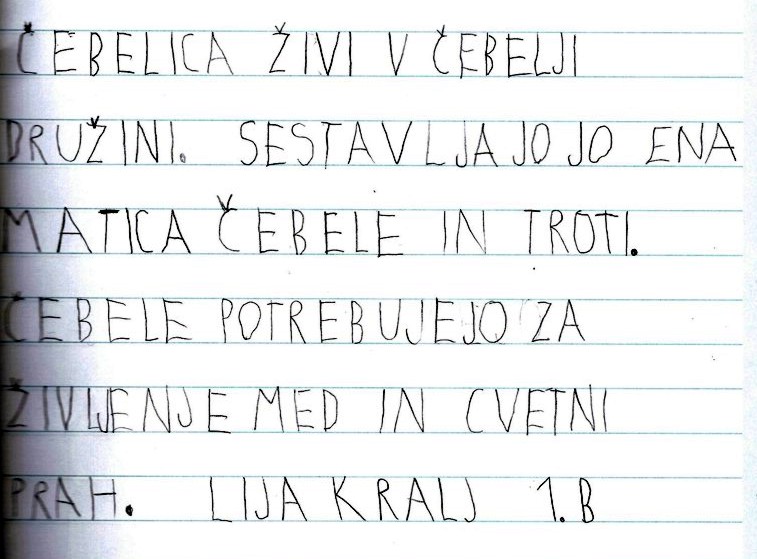 ČEBELICA ŽIVI V ČEBELJI
DRUŽINI. SESTAVLJAJO JO ENA
MATICA ČEBELE IN TROTI.
ČEBELE POTREBUJEJO ZA
ŽIVLJENJE MED IN CVETNI
PRAH. LIJA KRALJ 1. B